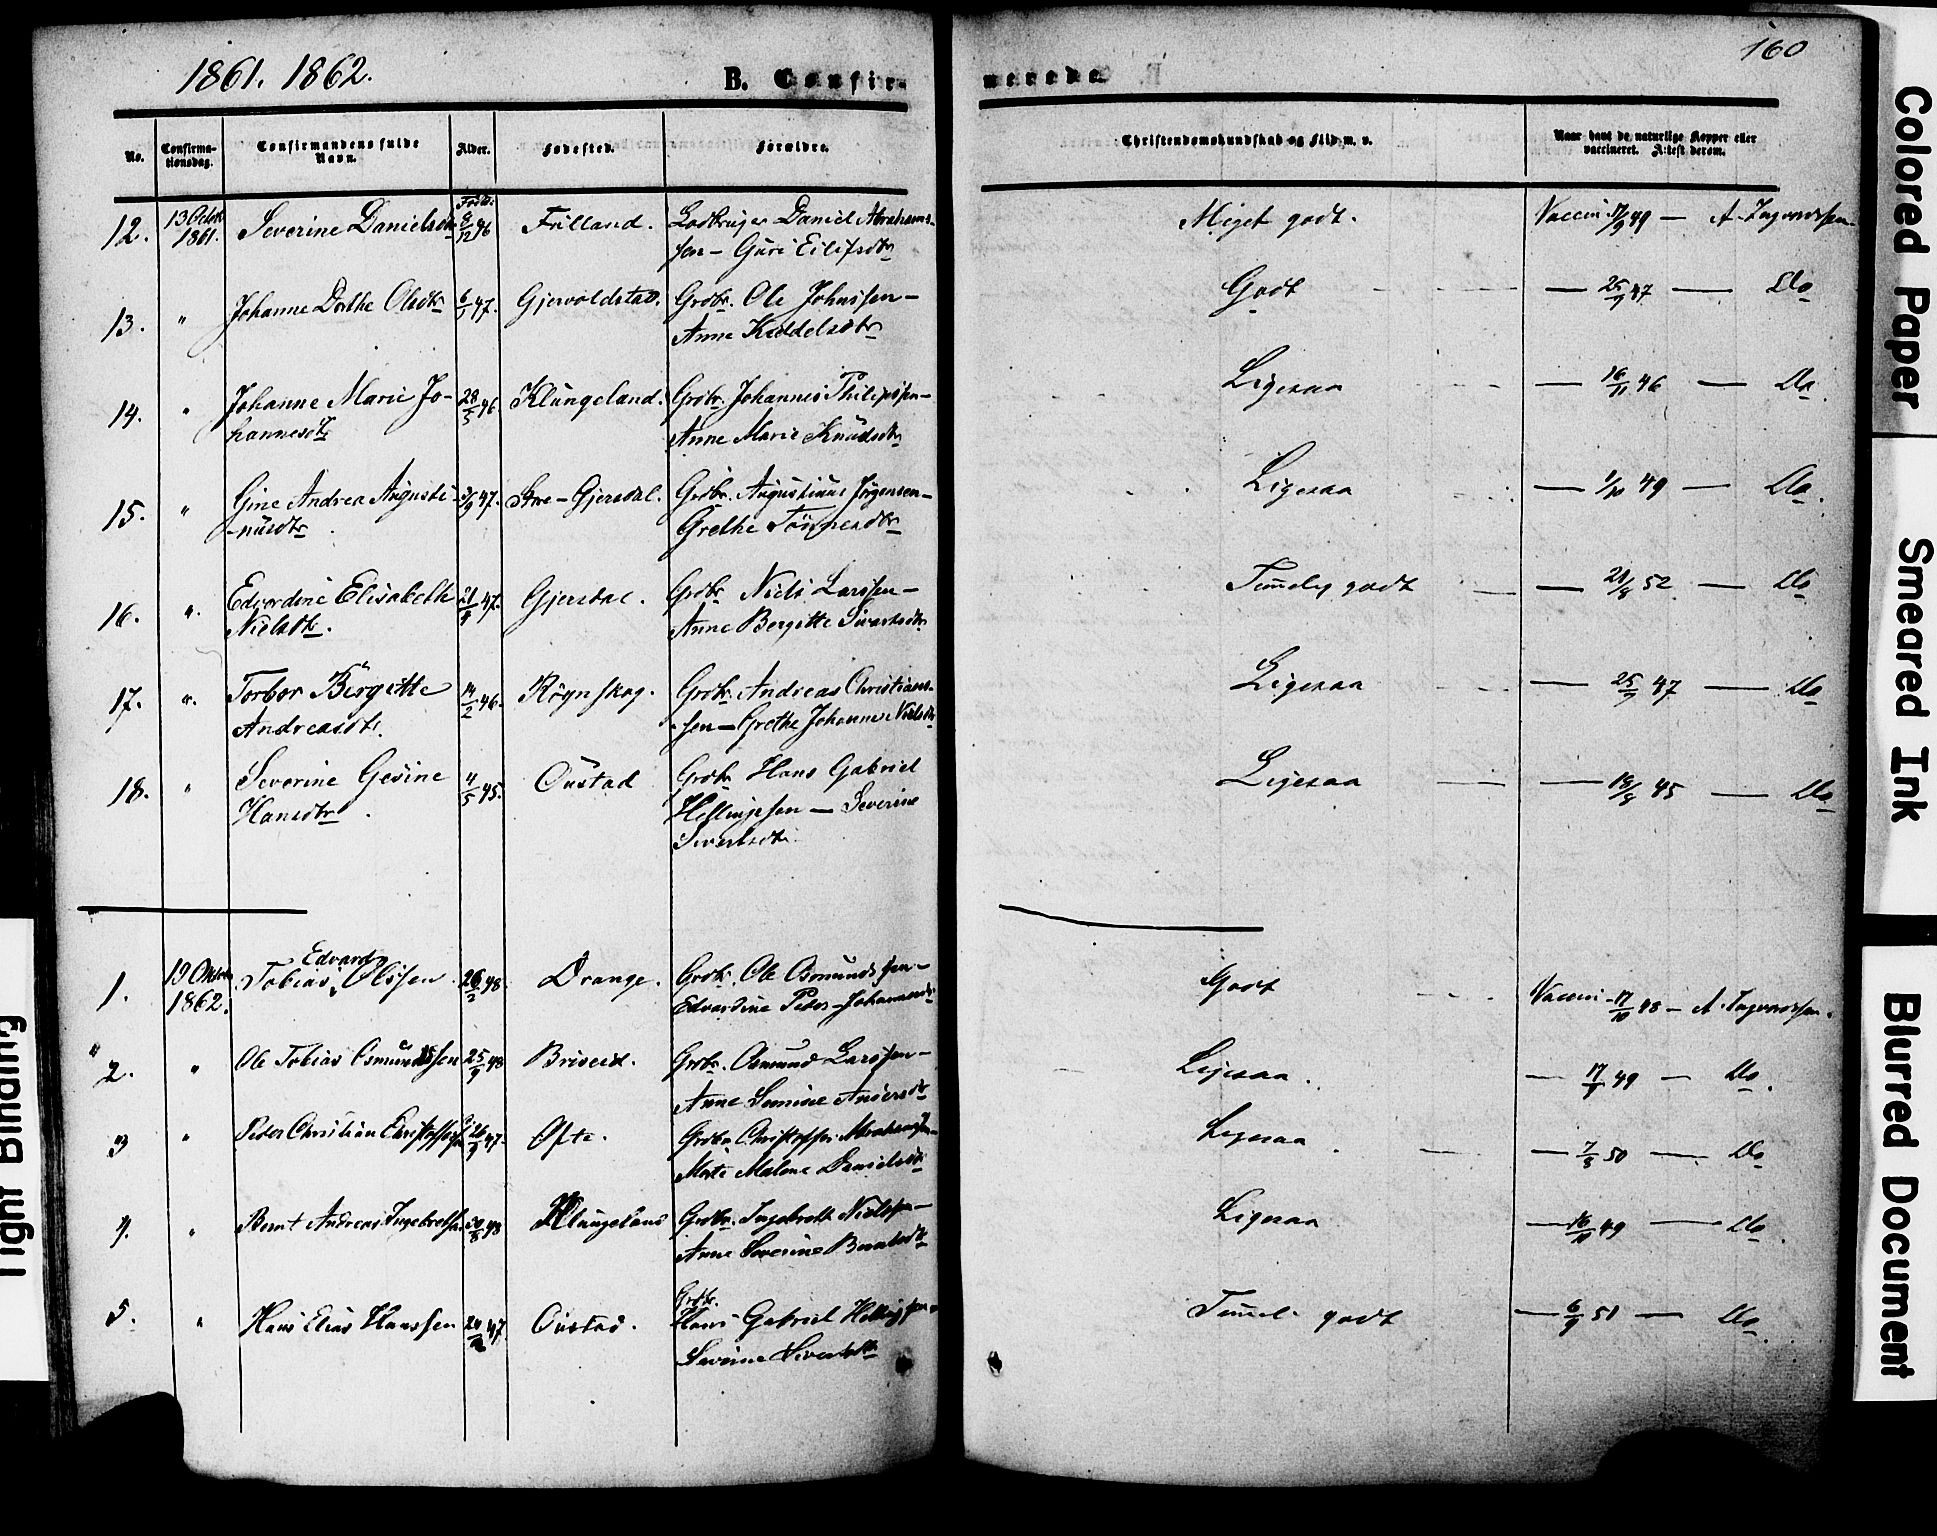 1861. 1862.
B. Confir-
merede.
160
No.
Confirma-
tionsdag.
Confirmandens fulde
Navn.
Alder.
Fødested.
Forældre.
Christendomskundskab og Flid m. v.
Naar havt de naturlige Kopper eller
vaccineret. Attest derom.
12. 13 Octob 1861. Severine Danielsdtr Født: 8/12 46 Fuilland. Ladbruger Daniel Abrahams-
sen – Guri Eilifsdtr
Meget godt. Vaccin 17/9 49 — A. Ingvardsen
13. " Johanne Dorthe Olsdtr 6/1 47. Gjervoldstad. Grdbr. Ole Johnssen –
Anne Keddelsdtr
Godt — 25/9 47 — Do
14. " Johanne Marie Jo-
hannesdt. 28/5 46 Klungeland. Grdbr. Johannes Philipssen –
Anne Marie Knudsdtr
Ligesaa — 16/11 46 — Do.
15. " Gine Andrea Augusti-
nusdtr 3/9 47. Gjersdal. Grdbr. Augustinus Jørgensen –
Grethe Tönnesdtr
Ligesaa — 1/10 49 — Do.
16. " Edvardine Elisabeth
Nielsdtr. 21/4 47. Gjersdal. Grdbr Niels Larssen –
Anne Bergitte Sivertsdtr
Temmelig godt — 21/8 52 — Do
17. " Torbor Bergitte
Andreasdtr. 14/2 46. Rögnskog. Grdbr. Andreas Christians-
sen – Grethe Johanne Nielsdtr
Ligesaa — 25/9 47 — Do
18. " Severine Gesine
Hansdtr. 4/5 45. Oustad Grdbr Hans Gabriel
Hellingsen – Severine
Sivertsdtr.
Ligesaa — 18/8 45 — Do
1. 19 Oktob 1862. Tobias Edvard Olssen. 26/2 48 Drange. Grdbr. Ole Osmundssen –
Edvardine Peder-Johannesdtr
Godt Vaccin 17/10 48 – A. Ingvardsen.
2. " Ole Tobias Osmundssen 25/9 48 Briseid. Grdbr. Osmund Larssen –
Anne Andersdtr
Ligesaa. — 17/9 49 — Do.
3 " Peder Christian Christoffersen 26/9 47. Ofte. Grdbr Christoffer Abrahamsen –
Malene Danielsdtr
Ligesaa. — 7/8 50 — Do
4. " Bernt Andreas Ingebretsen 48 Klungeland Grdbr. Ingebrett Nielssen –
Anne Severine Berntsdtr
Ligesaa — 16/10 49 — Do.
5. " Hans Elias Hanssen 47 Oustad. Grdbr.
Hans Gabriel Hellingsen
Severine Sivertsdtr
Temmel. godt — 6/9 51 — Do.
Colored Paper
Smeared Ink
Blurred Document
Tight Binding